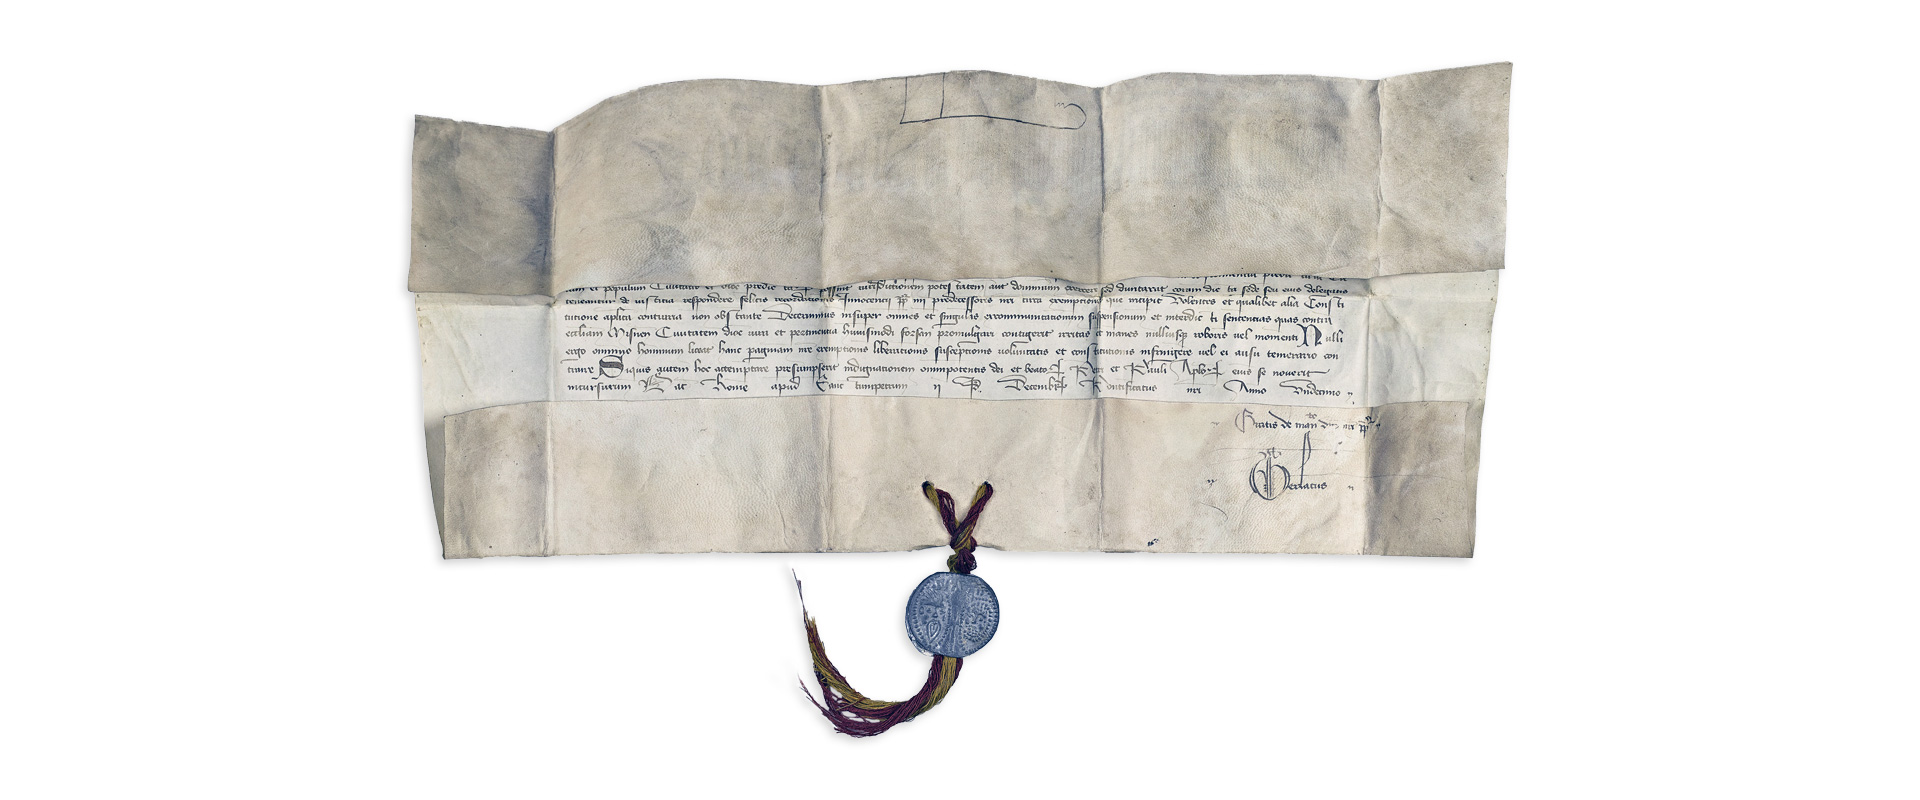 et populum Civitatis et dioc predic iurisdictionem potestatem aut dominium sed duntaxat coram dic ta sede seu eius delegatis
teneantur de iusticia respondere felicis recordationis Innocencii pp iiii predecessoris nri circa exemptos que incipit Volentes et qualibet alia Consti
tutione aplica contraria non obstante Decernimus insuper omnes et singulas excommunicationum suspensionum et interdic ti sentencias quas contra
eccliam Misnen Civitatem dioc iura et pertinentia huiusmodi forsan promulgari contigerit irritas et inanes nulliusqz roboris vel momenti Nulli
ergo omnino hominum liceat hanc paginam nre exemptionis liberationis susceptionis voluntatis et constitutionis infringere vel ei ausu temerario con
traire Siquis autem hoc attemptare presumpserit indignationem omnipotentis dei et beator Petri et Pauli Aplor eius se noverit
incursurum Dat Rome apud Sanc tumpetrum ii Decembr Pontificatus nri Anno Undecimo
Gratis de man dni nri pp
Gerlacus